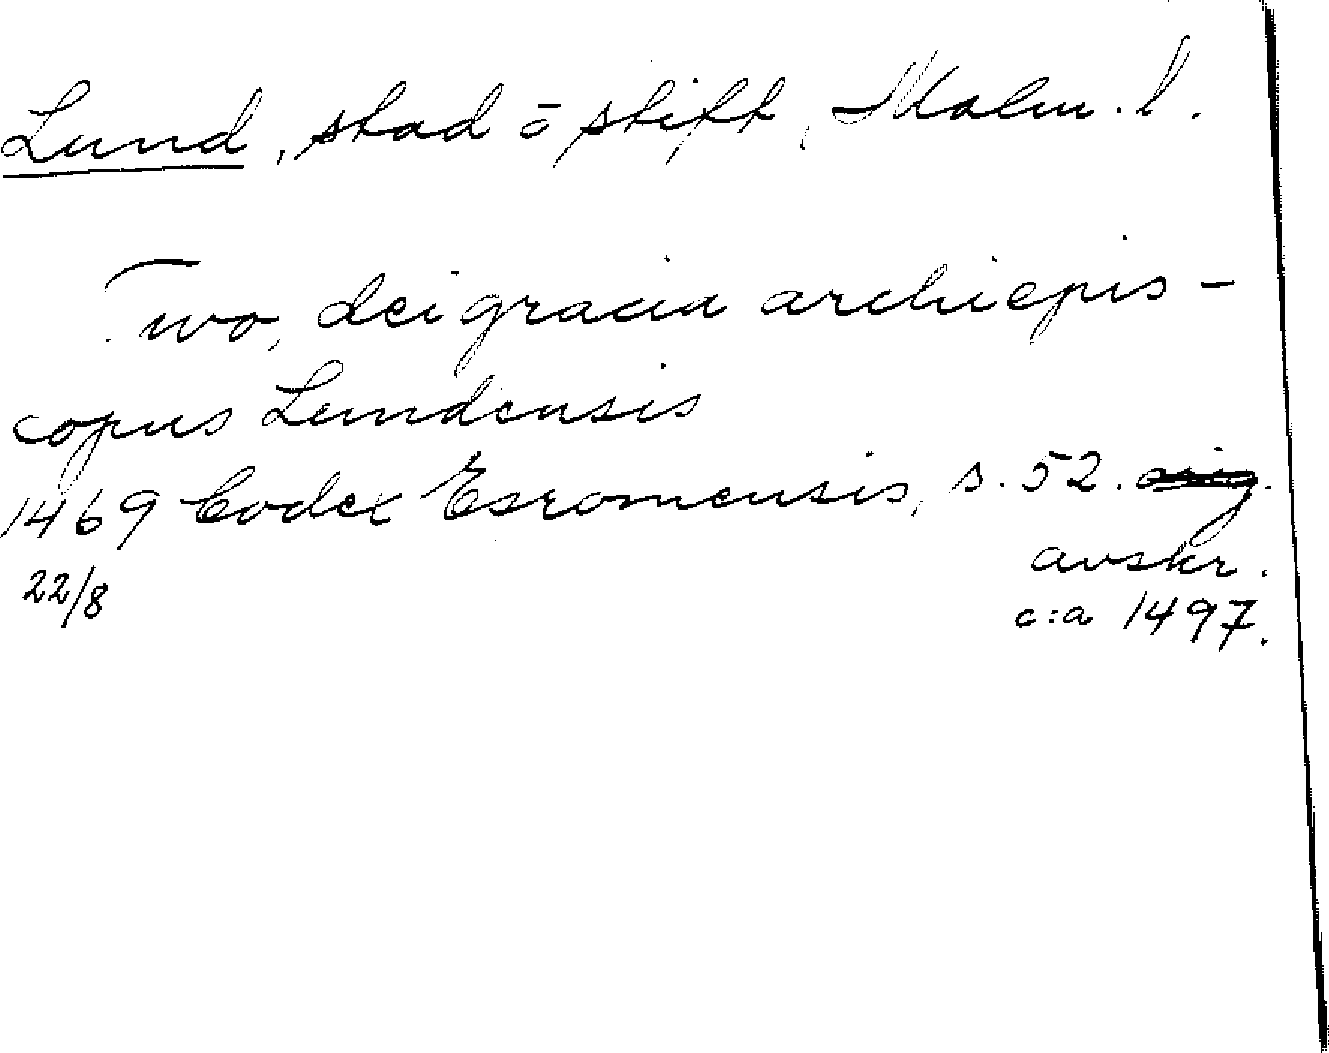 Lund, stad o stift, Malm. l.
Tuvo, dei gracia archiepis-
copus Lundensis
1469 Codex Esromensis, s. 52. orig.
avskr.
22/8
c:a 1497.